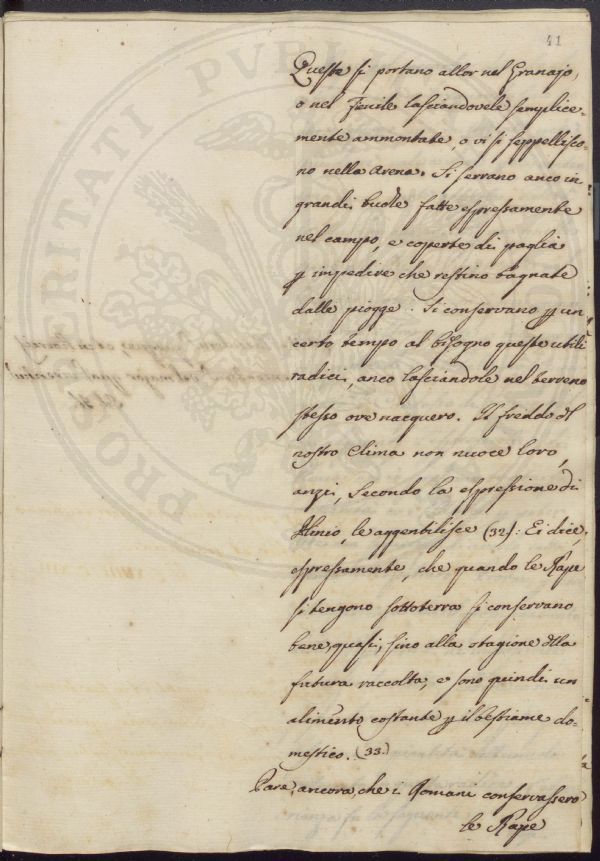 41
Queste si portano allor nel Granajo,
o nel Fienile lasciandovele semplice-
mente ammontate, o vi si seppellisco-
no nella Arena. Si serrano anco in
grandi buche fatte espressamente
nel campo, e coperte di paglia
p impedire che restino bagnate
dalle piogge. Si conservano p un
certo tempo al bisogno queste utili
radici, anco lasciandole nel terreno
stesso ove nacquero. Il freddo dl
nostro Clima non nuoce loro,
anzi, secondo la espressione di
Plinio, le aggentilisce (32): Ei dice,
espressamente, che quando le Rape
si tengono sottoterra si conservano
bene quasi, fino alla stagione dlla
futura raccolta, e sono quindi un
alimento costante p il bestiame do-
mestico. (33.)
Pare, ancora, che i Romani conservassero
le Rape
PRO UTILITATI PUBL